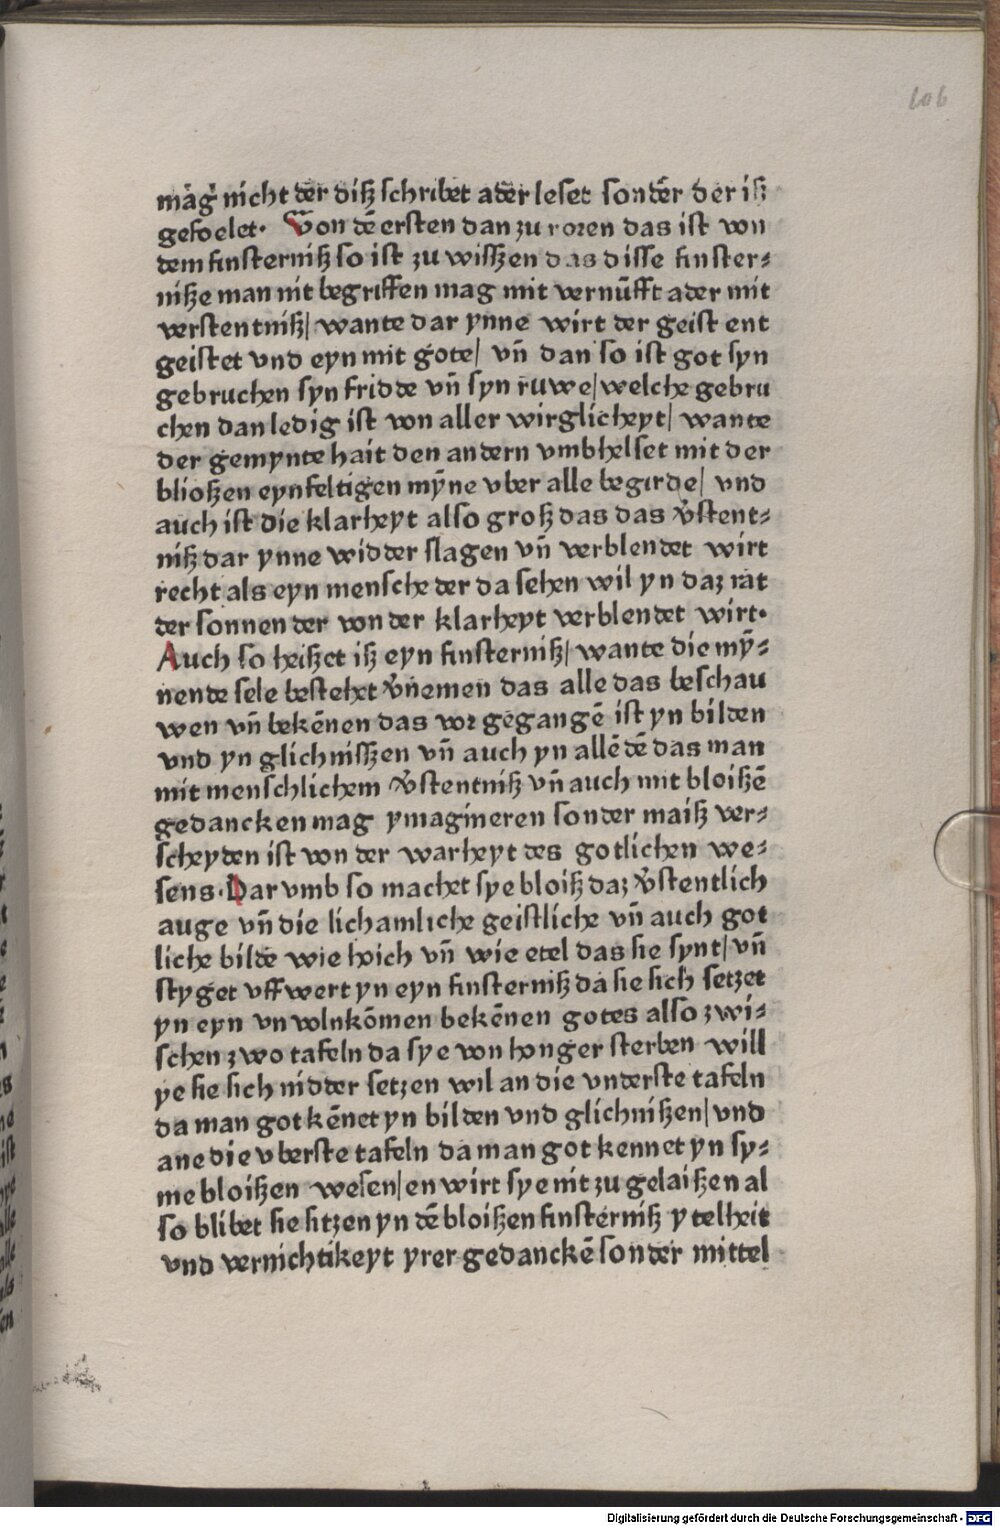 106
mag nicht der diß schribet ader leset sonder der iß
gefoelet· Von dē ersten dan zu roren das ist von
dem finsterniß so ist zu wisszen das disse finster⸗
niße man nit begriffen mag mit vernūfft ader mit
verstentniß/ wante dar ynne wirt der geist ent
geistet vnd eyn mit gote/ vn̄ dan so ist got syn
gebruchen syn fridde vn̄ syn ruwe/welche gebru
chen dan ledig ist von aller wirglicheyt/ wante
der gemynte hait den andern vmbhelset mit der
blioßen eynfeltigen mȳne vber alle begirde/ vnd
auch ist die klarheyt also groß das das v̓stent⸗
niß dar ynne widder slagen vn̄ verblendet wirt
recht als eyn mensche der da sehen wil yn daz rat
der sonnen der von der klarheyt verblendet wirt·
Auch so heißet iß eyn finsterniß/ wante die mȳ⸗
nende sele bestehet v̓nemen das alle das beschau
wen vn̄ bekēnen das vor gegangē ist yn bilden
vnd yn glichnisszen vn̄ auch yn allē dē das man
mit menschlichem v̓stentniß vn̄ auch mit bloißē
gedancken mag ymagineren sonder maiß ver⸗
scheyden ist von der warheyt des gotlichen we⸗
sens·Dar vmb so machet sye bloiß daz v̓stentlich
auge vn̄ die lichamliche geistliche vn̄ auch got
liche bilde wie hoich vn̄ wie etel das sie synt/ vn̄
styget vffwert yn eyn finsterniß da sie sich setzet
yn eyn vnvolnkōmen bekēnen gotes also zwi⸗
schen zwo tafeln da sye von honger sterben will
ye sie sich nidder setzen wil an die vnderste tafeln
da man got kēnet yn bilden vnd glichnißen/ vnd
ane die vberste tafeln da man got kennet yn sy⸗
me bloißen wesen/ en wirt sye nit zu gelaißen al
so blibet sie sitzen yn dē bloißen finsterniß ytelheit
vnd vernichtikeyt yrer gedanckē sonder mittel
Digitalisierung gefördert durch die Deutsche Forschungsgemeinschaft - DFG